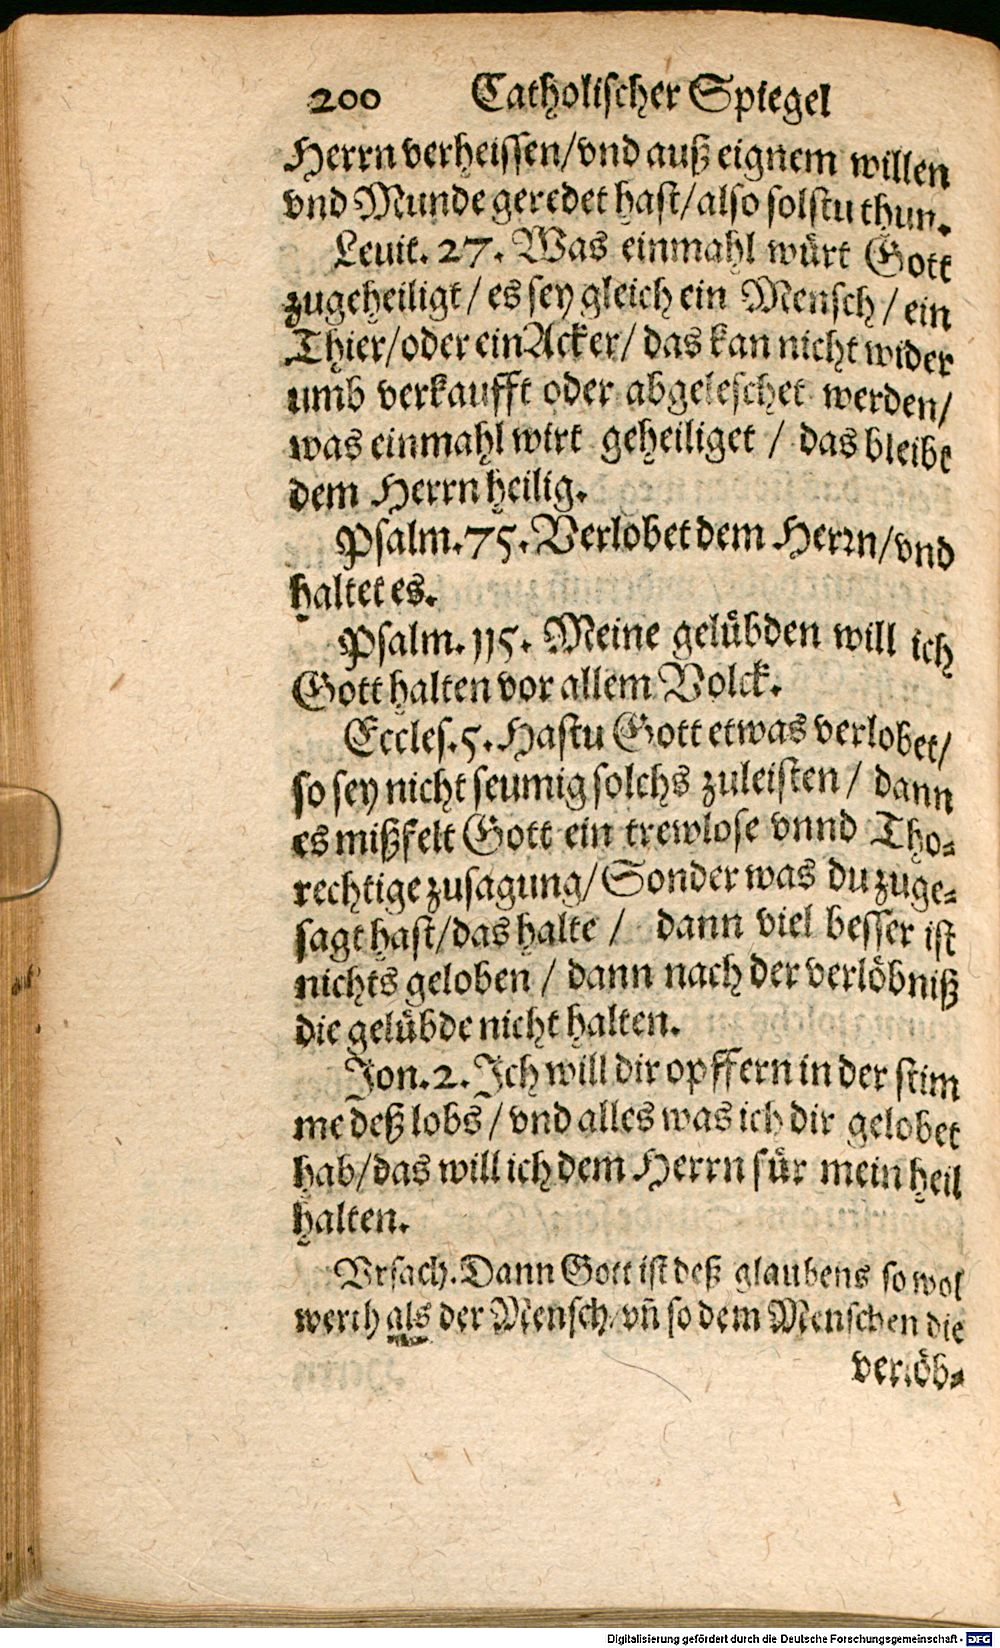 200 Catholischer Spiegel
Herrn verheissen/vnd auß eignem willen
vnd Munde geredet hast/also solstu thun.
Leuit. 27. Was einmahl würt Gott
zugeheiligt/es sey gleich ein Mensch/ein
Thier/oder ein Acker/das kan nicht wider
umb verkaufft oder abgeleschet werden/
was einmahl wirt geheiliget/das bleibt
dem Herrn heilig.
Psalm. 75. Verlobet dem Herrn/vnd
haltet es.
Psalm. 115. Meine gelübden will ich
Gott halten vor allem Volck.
Eccles. 5. Hastu Gott etwas verlobet/
so sey nicht seumig solchs zuleisten/dann
es mißfelt Gott ein trewlose vnnd Tho-
rechtige zusagung/Sonder was du zuge-
sagt hast/das halte/dann viel besser ist
nichts geloben/dann nach der verlöbniß
die gelübde nicht halten.
Jon. 2. Ich will dir opffern in der stim
me deß lobs/vnd alles was ich dir gelobet
hab/das will ich dem Herrn für mein heil
halten.
Vrsach. Dann Gott ist deß glaubens so wol
werth als der Mensch/vñ so dem Menschen die
verlöb-
Digitalisierung gefördert durch die Deutsche Forschungsgemeinschaft - DFG